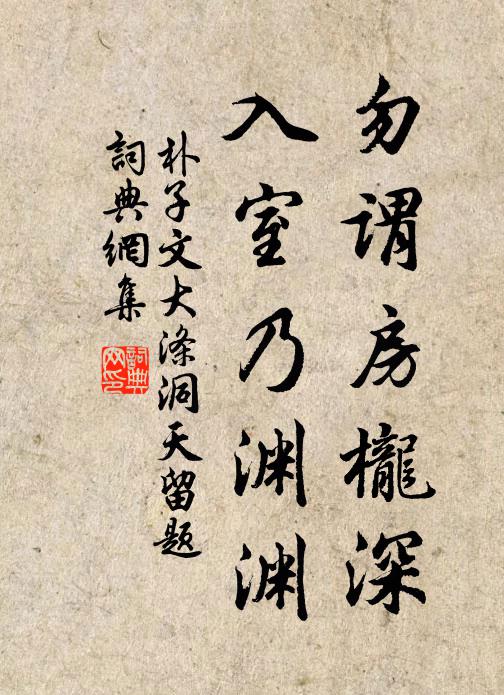 勿谓房櫳深
入室乃渊渊
朴子文大涤洞天留题
詞典網集
詞典网印